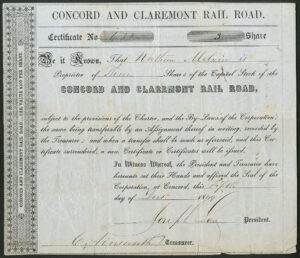 CONCORD AND CLAREMONT RAIL ROAD.
Certificate No. 3 Share
Be it Known, That Nathan
Proprietor of Three Shares of the Capital Stock of the
CONCORD AND CLAREMONT RAIL ROAD,
subject to the provisions of the Charter, and the By-Laws of the Corporation;
the same being transferable by an Assignment thereof in writing, recorded by
the Treasurer; and when a transfer shall be made as aforesaid, and this Cer-
tificate surrendered, a new Certificate or Certificates will be issued.
In Witness Whereof, the President and Treasurer have
hereunto set their Hands and affixed the Seal of the
Corporation, at Concord, this
day of 18
Joseph Low President.
Treasurer.
CONCORD AND CLAREMONT RAIL ROAD.